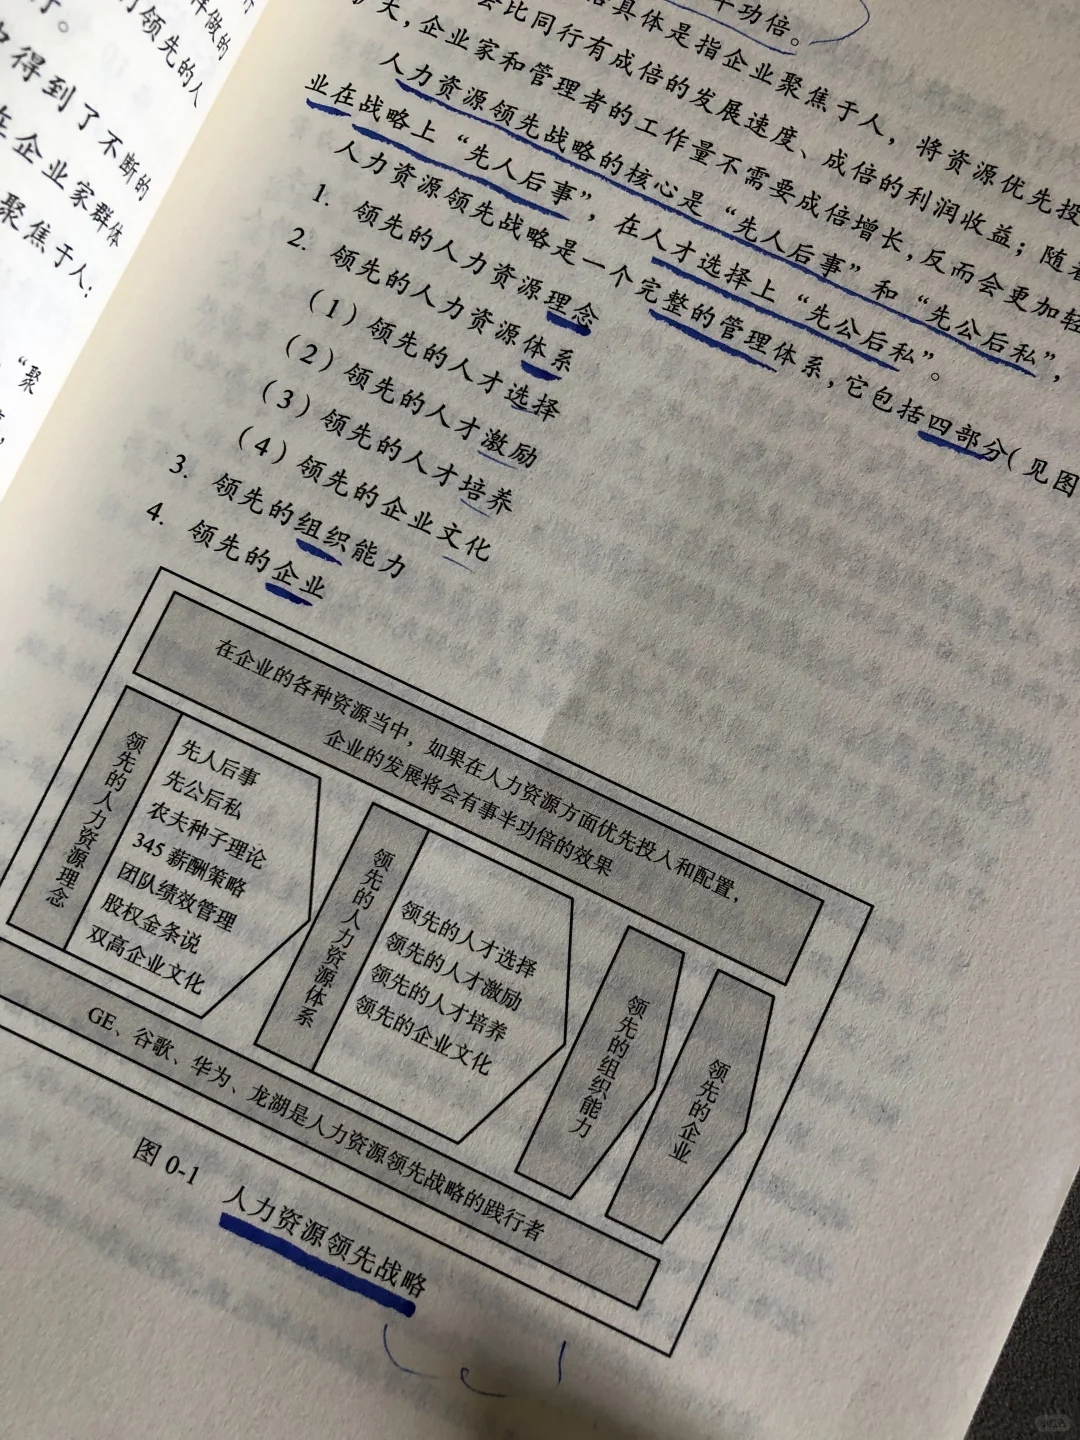 样做的
领先的人
行。
中得到了不断的
在企业家群体
聚焦于人：
“聚
半功倍。
具体是指企业聚焦于人，将资源优先投
会比同行有成倍的发展速度、成倍的利润收益；随着
扩大，企业家和管理者的工作量不需要成倍增长，反而会更加轻
人力资源领先战略的核心是“先人后事”和“先公后私”，
业在战略上“先人后事”，在人才选择上“先公后私”。
人力资源领先战略是一个完整的管理体系，它包括四部分（见图
1. 领先的人力资源理念
2. 领先的人力资源体系
（1）领先的人才选择
（2）领先的人才激励
（3）领先的人才培养
（4）领先的企业文化
3. 领先的组织能力
4. 领先的企业
在企业的各种资源当中，如果在人力资源方面优先投入和配置，
企业的发展将会有事半功倍的效果
领先的人力资源理念
先人后事
先公后私
农夫种子理论
345 薪酬策略
团队绩效管理
股权金条说
双高企业文化
领先的人力资源体系
领先的人才选择
领先的人才激励
领先的人才培养
领先的企业文化
领先的组织能力
领先的企业
GE、谷歌、华为、龙湖是人力资源领先战略的践行者
图 0-1 人力资源领先战略